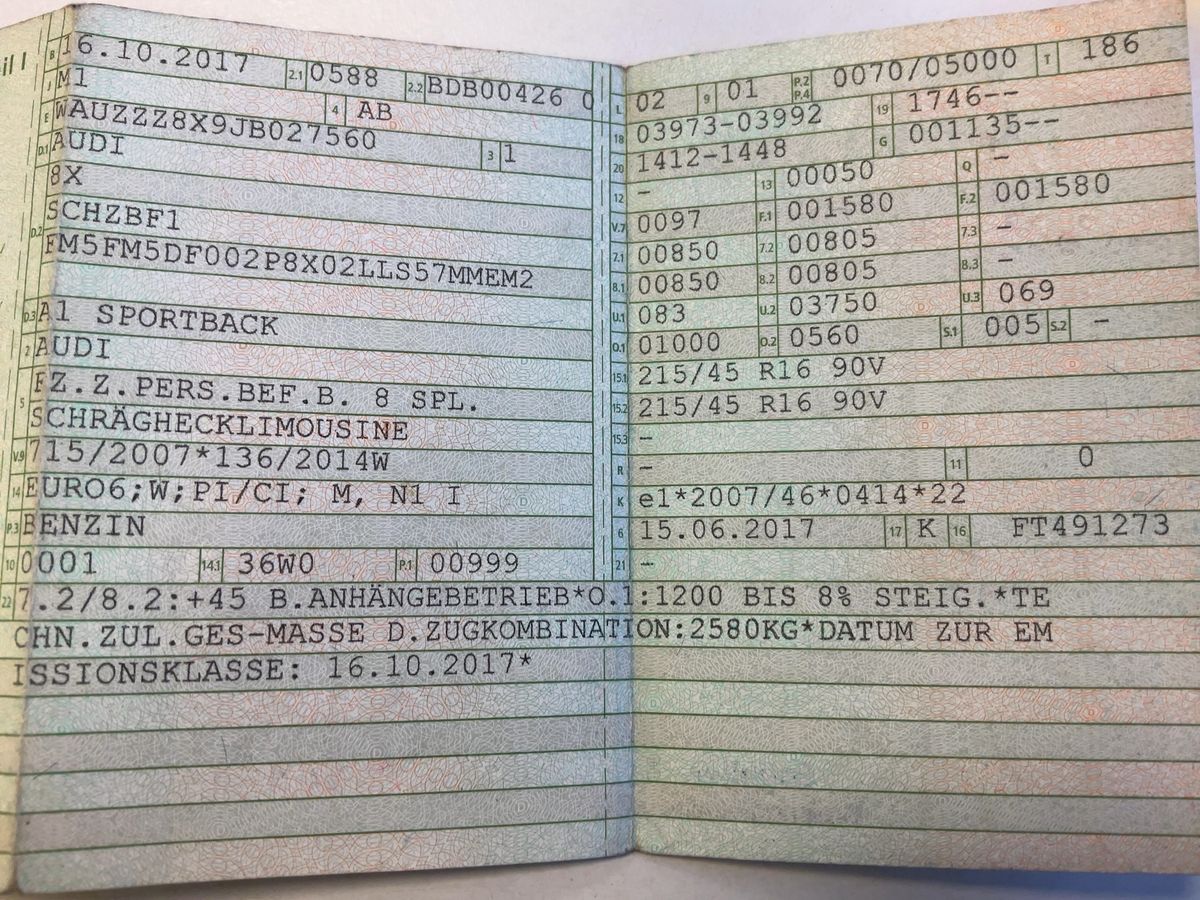 il I
B 16.10.2017 2.1 0588 2.2 BDB00426 0
J M1 4 AB
E WAUZZZ8X9JB027560 3 1
D.1 AUDI
8X
D.2 SCHZBF1
FM5FM5DF002P8X02LLS57MMEM2
D.3 A1 SPORTBACK
2 AUDI
5 FZ.Z.PERS.BEF.B. 8 SPL.
SCHRÄGHECKLIMOUSINE
V.9 715/2007*136/2014W
14 EURO6;W;PI/CI; M, N1 I
P.3 BENZIN
10 0001 14.1 36W0 P.1 00999
L 02 9 01 P.2 P.4 0070/05000 T 186
18 03973-03992 19 1746--
20 1412-1448 G 001135--
12 - 13 00050 Q -
V.7 0097 F.1 001580 F.2 001580
7.1 00850 7.2 00805 7.3 -
8.1 00850 8.2 00805 8.3 -
U.1 083 U.2 03750 U.3 069
O.1 01000 O.2 0560 S.1 005 S.2 -
15.1 215/45 R16 90V
15.2 215/45 R16 90V
15.3 -
R - 11 0
K e1*2007/46*0414*22
6 15.06.2017 17 K 16 FT491273
21 -
22 7.2/8.2:+45 B.ANHÄNGEBETRIEB*O.1:1200 BIS 8% STEIG.*TE
CHN.ZUL.GES-MASSE D.ZUGKOMBINATION:2580KG*DATUM ZUR EM
ISSIONSKLASSE: 16.10.2017*